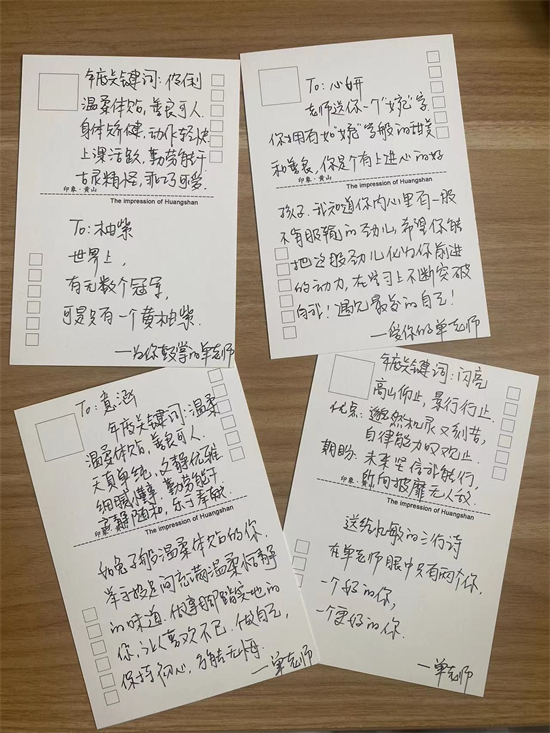 年度关键词:伶俐
温柔体贴,善良可人.
身体矫健,动作轻快
上课活跃,勤劳能干
古灵精怪,乖巧可尝.
印象·黄山
The impression of Huangshan
To:柚紫
世界上,
有无数个冠军,
可是只有一个黄柚紫.
—为你鼓掌的单老师
To:心妍
老师送你一个"婉"字
你拥有如"婉"字般的甜美
和善良,你是个有上进心的好
印象·黄山
The impression of Huangshan
孩子.我知道你内心里有一股
不肯服输的劲儿,希望你能
把这股劲儿化为你前进
的动力,在学习上不断突破
自我!遇见最好的自己!
—爱你的单老师
To:意涵
年度关键词:温柔
温柔体贴,善良可人.
天真单纯,文静优雅
细腻 勤劳能干
随和,乐于奉献
印象·黄山
The impression of Huangshan
如兔子般温柔体贴的你,
举手投足间充满温柔恬静
的味道.做事脚踏实地的
你,让人喜欢不已.做自己,
保持初心,方能无悔.
—单老师
年度关键词:闪亮
高山仰止,景行行止.
优点:聪慧机灵又刻苦,
自律能力叹观止.
期盼:未来坚信都能行,
所向披靡无人敌.
印象·黄山
The impression of Huangshan
送给 敏的三行诗
在单老师眼中只有两个你,
一个好的你,
一个更好的你.
—单老师